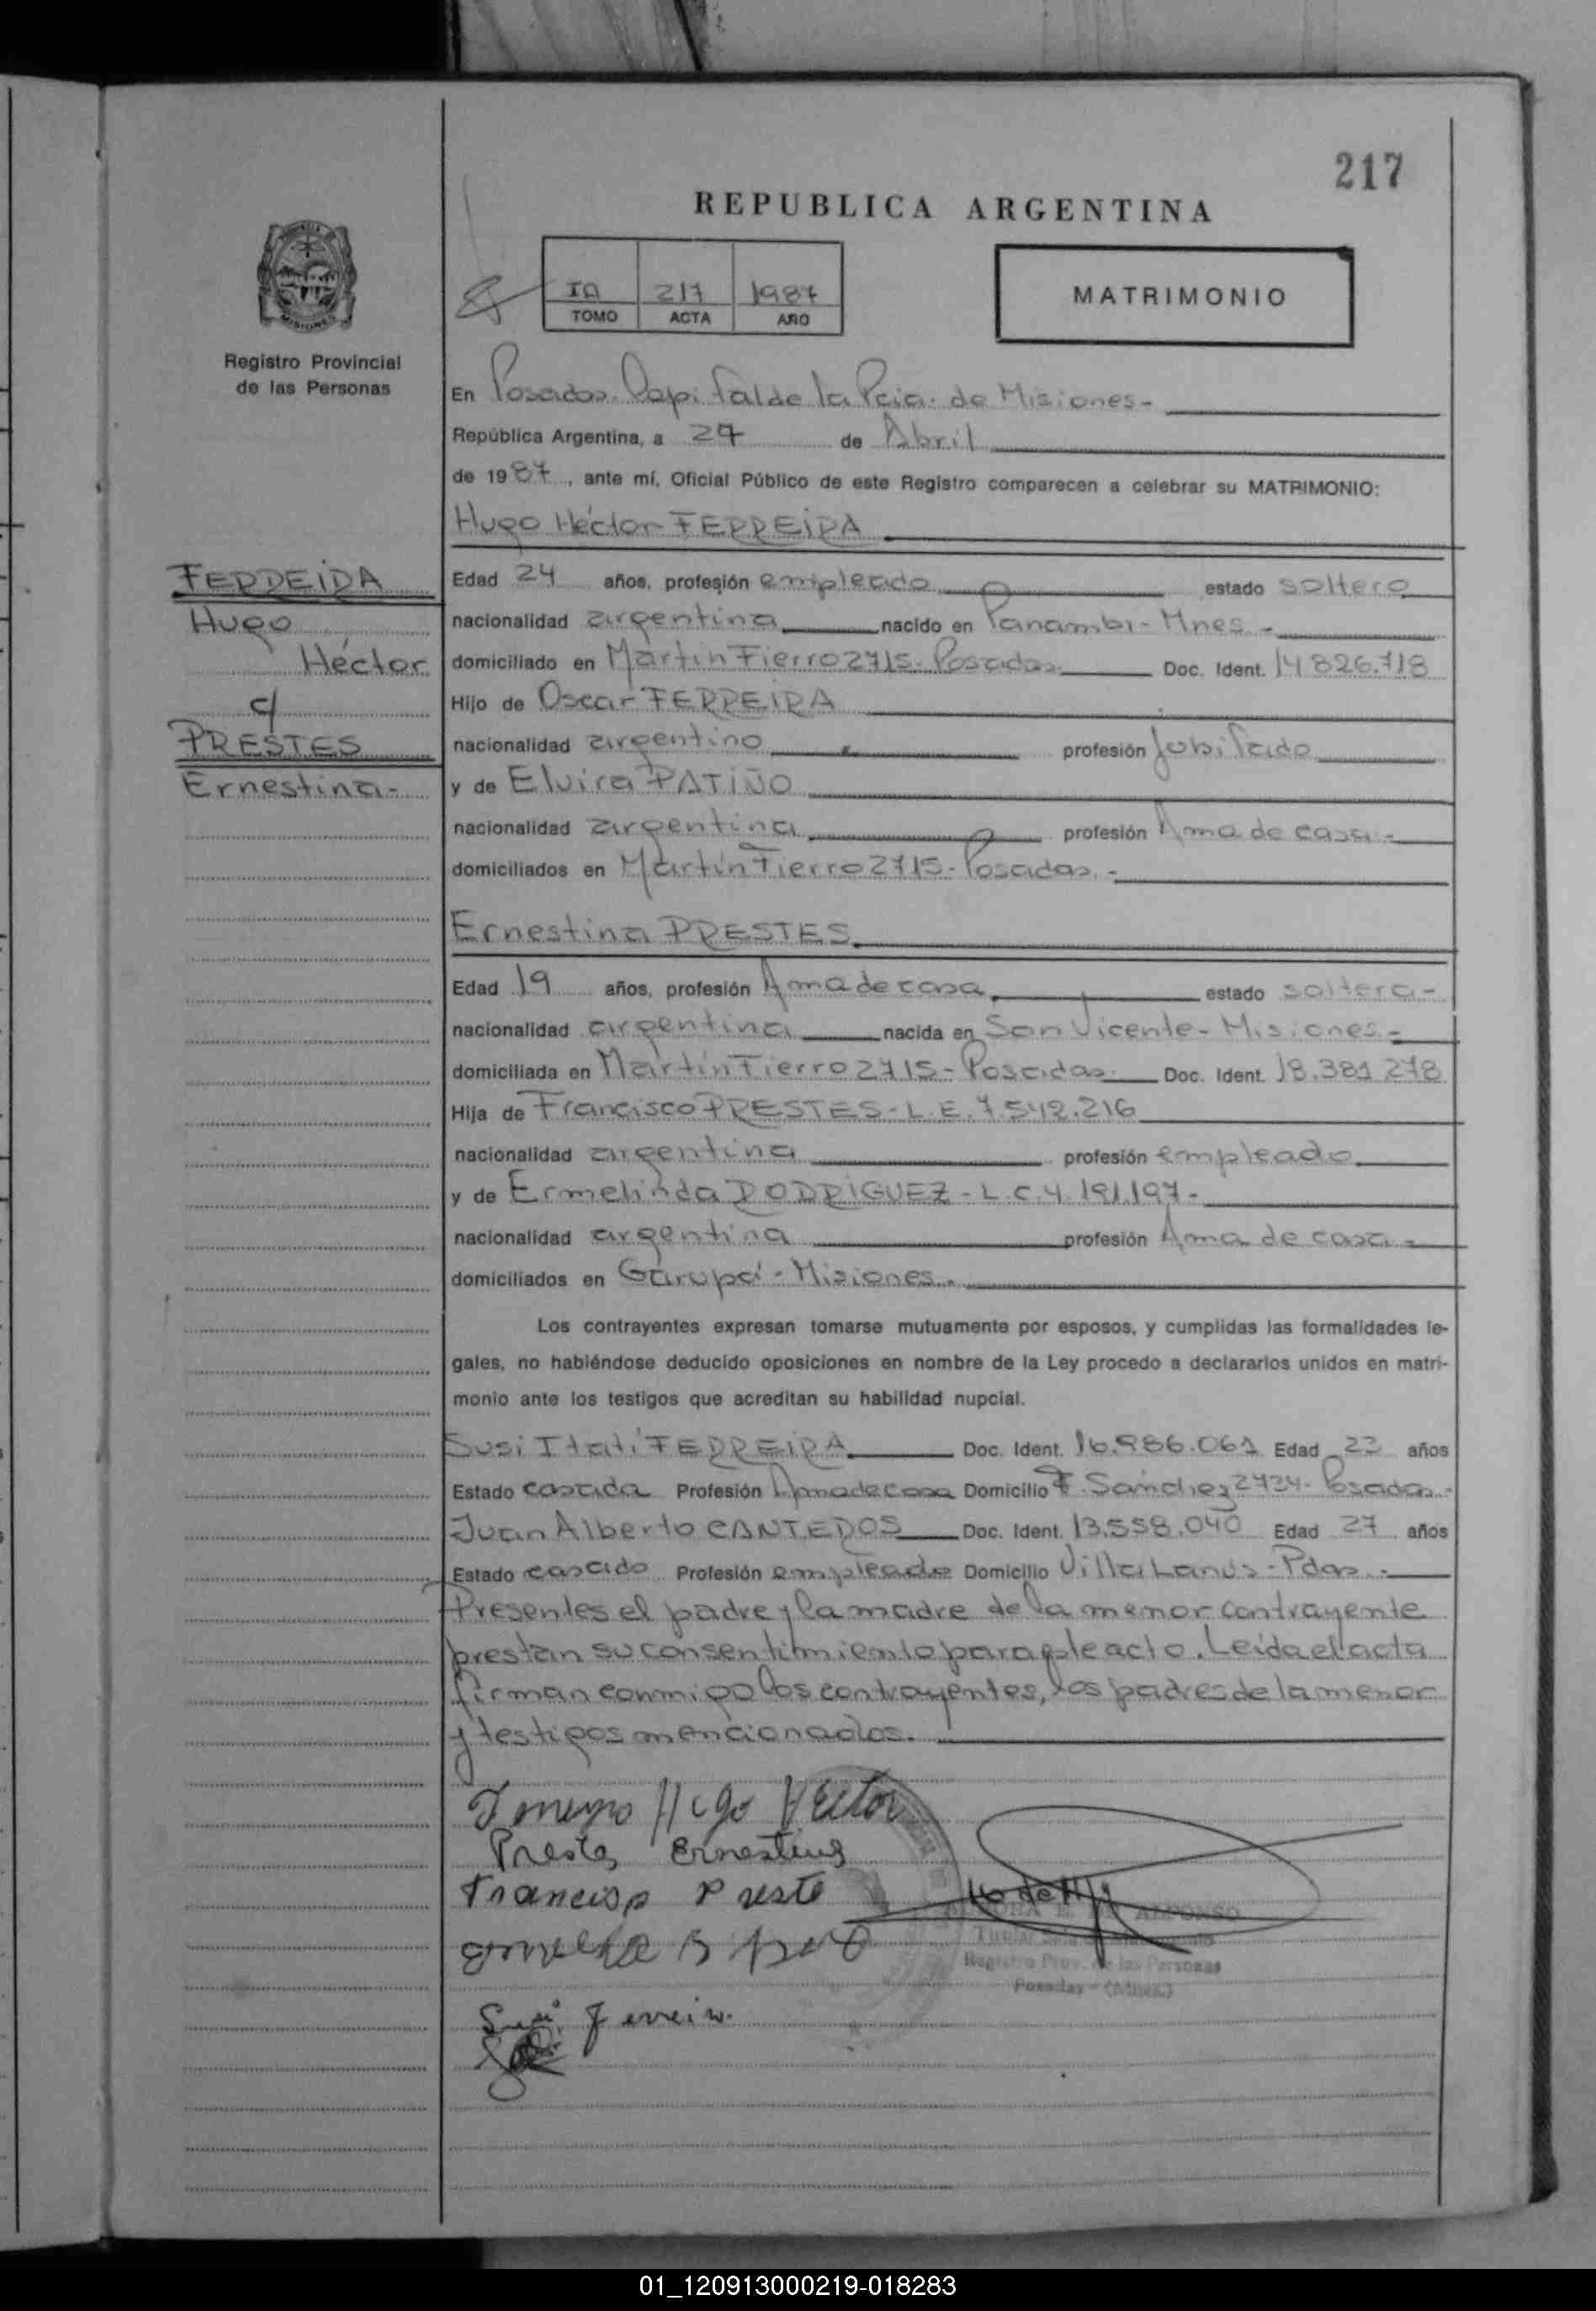 217
REPUBLICA ARGENTINA
MISIONES
Registro Provincial
de las Personas
217 1987
TOMO ACTA AÑO
MATRIMONIO
En Posadas. Capital de la Pcia. de Misiones-
República Argentina, a 27 de Abril
de 1987, ante mí, Oficial Público de este Registro comparecen a celebrar su MATRIMONIO:
Hugo Héctor FERREIRA
FERREIRA
Hugo
Héctor
c/
PRESTES
Ernestina-
Edad 24 años, profesión empleado estado soltero
nacionalidad argentina nacido en Panambi-Mnes-
domiciliado en Martín Fierro 2715-Posadas. Doc. Ident. 14826.718
Hijo de Oscar FERREIRA
nacionalidad argentino profesión Jubilado
y de Elvira PATIÑO
nacionalidad argentina profesión Ama de casa-
domiciliados en Martín Fierro 2715-Posadas.-
Ernestina PRESTES
Edad 19 años, profesión Ama de casa estado soltera-
nacionalidad argentina nacida en San Vicente-Misiones-
domiciliada en Martín Fierro 2715-Posadas. Doc. Ident. 18.381 278
Hija de Francisco PRESTES-L.E.7.542.216
nacionalidad argentina profesión empleado
y de Ermelinda RODRIGUEZ-L.C.4.191.197-
nacionalidad argentina profesión Ama de casa-
domiciliados en Garupá-Misiones.
Los contrayentes expresan tomarse mutuamente por esposos, y cumplidas las formalidades le-
gales, no habiéndose deducido oposiciones en nombre de la Ley procedo a declararlos unidos en matri-
monio ante los testigos que acreditan su habilidad nupcial.
Susi Itatí FERREIRA Doc. Ident. 16.986.061 Edad 23 años
Estado casada Profesión Ama de casa Domicilio F. Sánchez 2734-Posadas-
Juan Alberto CANTEROS Doc. Ident. 13.558.040 Edad 27 años
Estado casado Profesión empleado Domicilio Villa Lanús-Pdas.-
Presentes el padre y la madre de la menor contrayente
prestan su consentimiento para este acto. Leída el acta
firman conmigo los contrayentes, los padres de la menor
y testigos mencionados.
Hugo Hector
Prestes Ernestina
Francisco Preste
ALFONSO
Titular
Registro Prov. de las Personas
Posadas - (Mnes.)
Susi Ferreira.
01_120913000219-018283